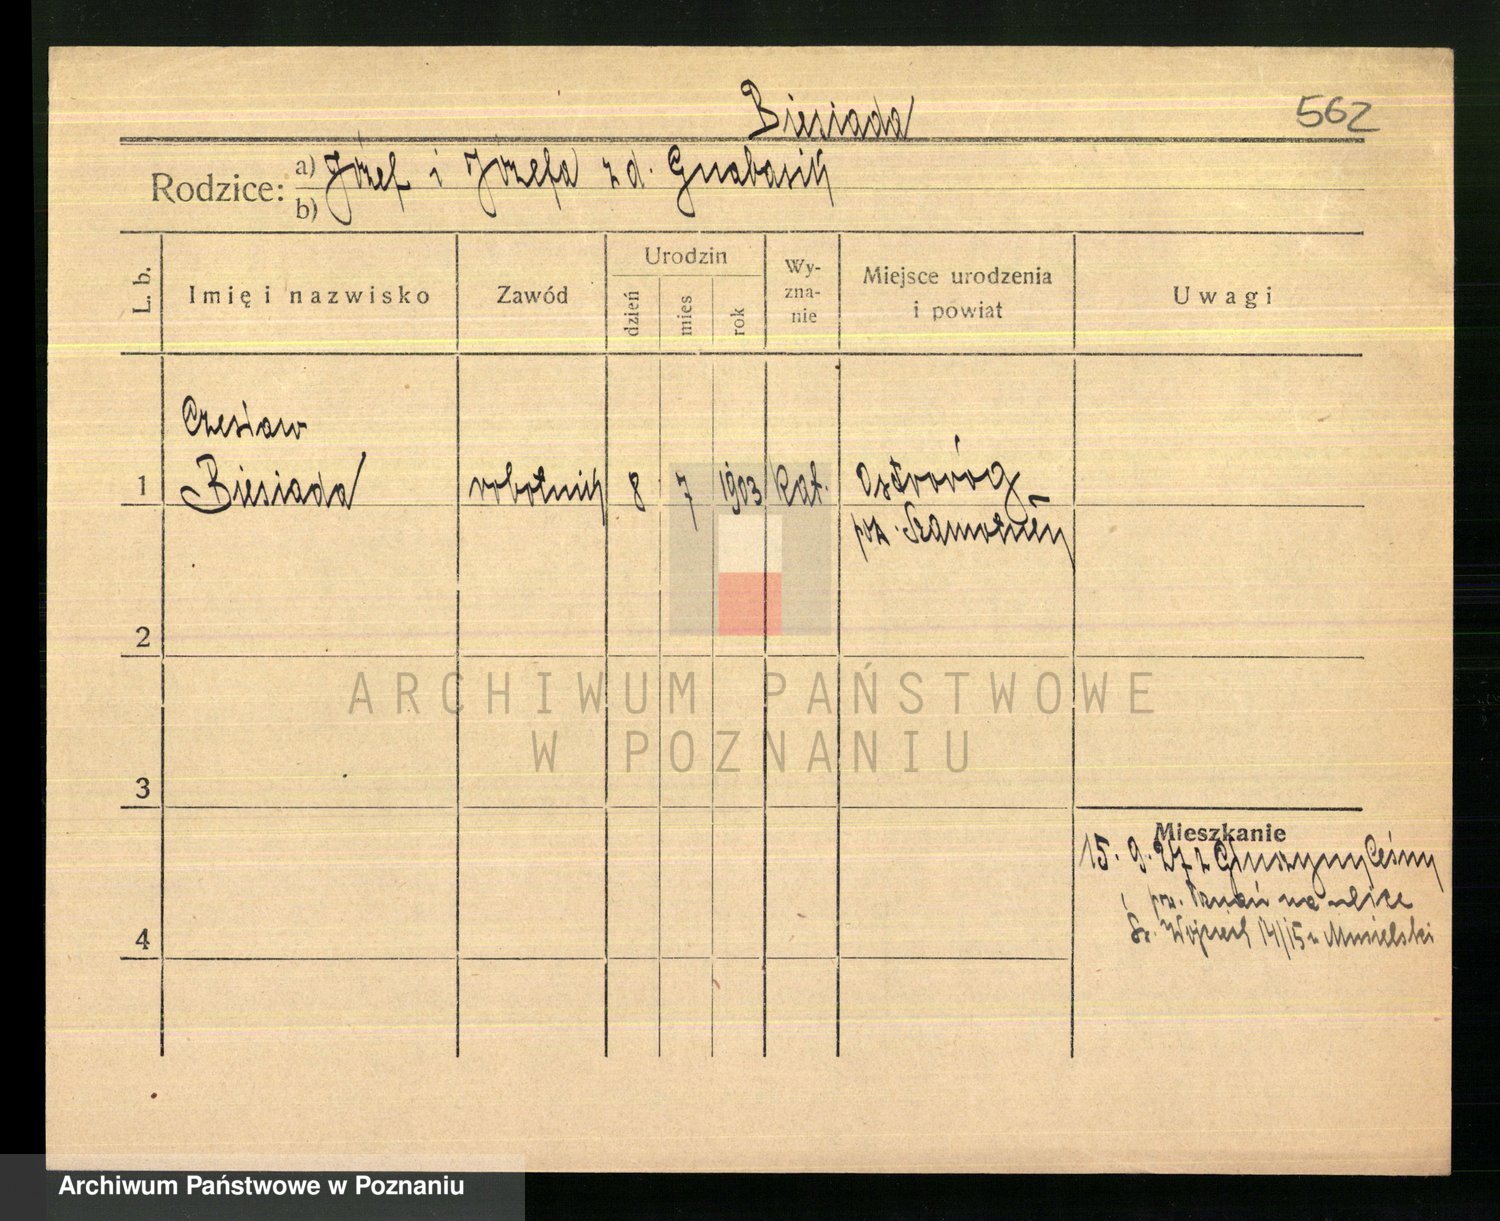 Biesiada
562
Rodzice: a) Józef i Józefa z d. Gnabasik
b)
L. b.
Imię i nazwisko
Zawód
Urodzin
dzień
mies
rok
Wy-
zna-
nie
Miejsce urodzenia
i powiat
Uwagi
Czesław
1 Biesiada robotnik 8 7 1903 Kat. Ostroróg
pow. Szamotuły
2
3
4
Mieszkanie
15. 9. 27 z
na ulice
Św. Wojciech 14/15 u Musielski
ARCHIWUM PAŃSTWOWE
W POZNANIU
Archiwum Państwowe w Poznaniu